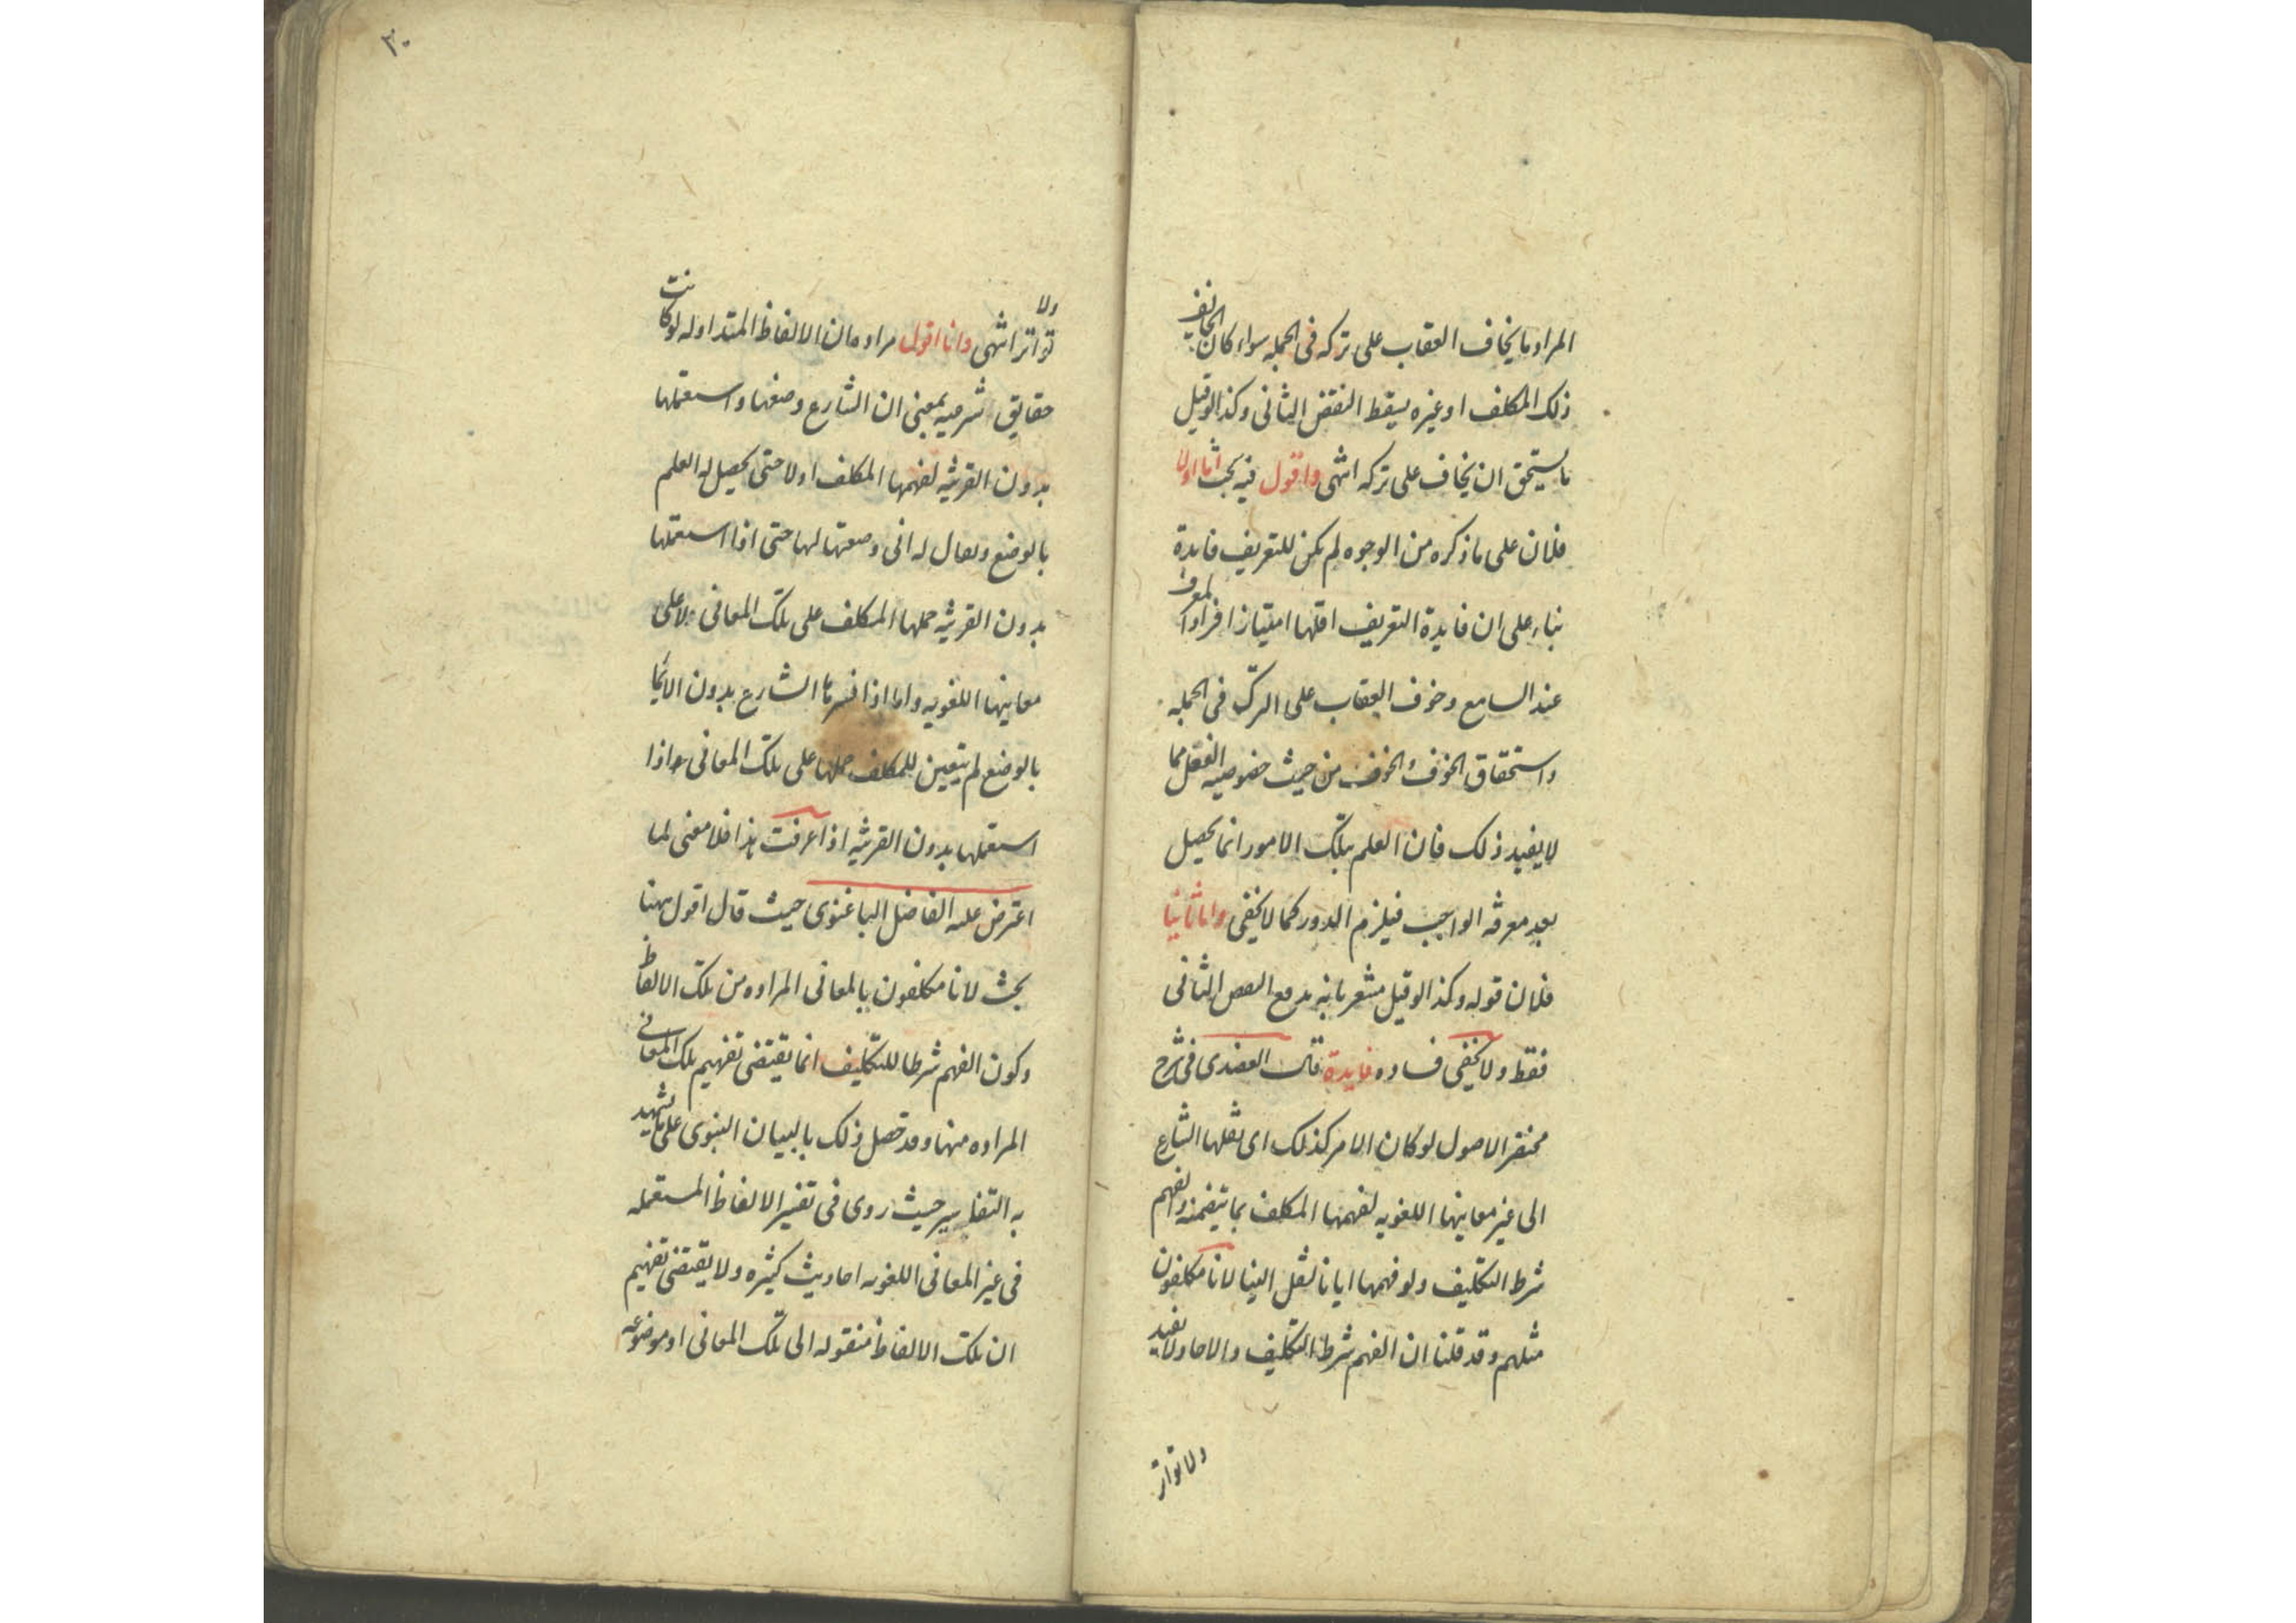 المراد ما يخاف العقاب على تركه فى الجمله سواء كان الخايف
ذلك المكلف او غيره يسقط النقض الثانى وكذا لو قيل
ما يستحق ان يخاف على تركه انتهى واقول فيه بحث اما اولا
فلان على ما ذكره من الوجوه لم يكن للتعريف فايدة
بناء على ان فايدة التعريف اقلها امتياز افراد المعرف
عند السامع وخوف العقاب على الترك فى الجمله
واستحقاق الخوف الخوف من حيث خصوصيه الفعل مما
لا يفيد ذلك فان العلم بتلك الامور انما يحصل
بعد معرفه الواجب فيلزم الدور كما لا يخفى واما ثانيا
فلان قوله وكذا لو قيل مشعر بانه يدفع النقض الثانى
فقط ولا يخفى فساده فايدة قال العضدى فى شرح
مختصر الاصول لو كان الامر كذلك اى نقلها الشارع
الى غير معانيها اللغويه لفهمها المكلف بما يتضمنه والفهم
شرط التكليف ولو فهمها ايانا لنقل الينا لانا مكلفون
مثلهم وقد قلنا ان الفهم شرط التكليف والاحاد لا تفيد
ولا تواتر
٣٠
ولا
تواتر انتهى وانا اقول مراده ان الالفاظ المتداوله لو كانت
حقايق شرعيه بمعنى ان الشارع وضعها واستعملها
بدون القرينه لفهمها المكلف اولا حتى يحصل له العلم
بالوضع ويقال له انى وضعتها لها حتى اذا استعملها
بدون القرينه حملها المكلف على تلك المعانى لا على
معانيها اللغويه واما اذا فسرها الشارع بدون الانباء
بالوضع لم يتعين للمكلف حملها على تلك المعانى اذا
استعملها بدون القرينه اذا عرفت هذا فلا معنى لما
اعترض عليه الفاضل الباغنوى حيث قال اقول ههنا
بحث لانا مكلفون بالمعانى المراده من تلك الالفاظ
وكون الفهم شرطا للتكليف انما يقتضى تفهيم تلك المعانى
المراده منها وقد حصل ذلك بالبيان النبوى على ما يشهد
به التفاسير حيث روى فى تفسير الالفاظ المستعمله
فى غير المعانى اللغويه احاديث كثيره ولا يقتضى تفهيم
ان تلك الالفاظ منقوله الى تلك المعانى او موضوعه